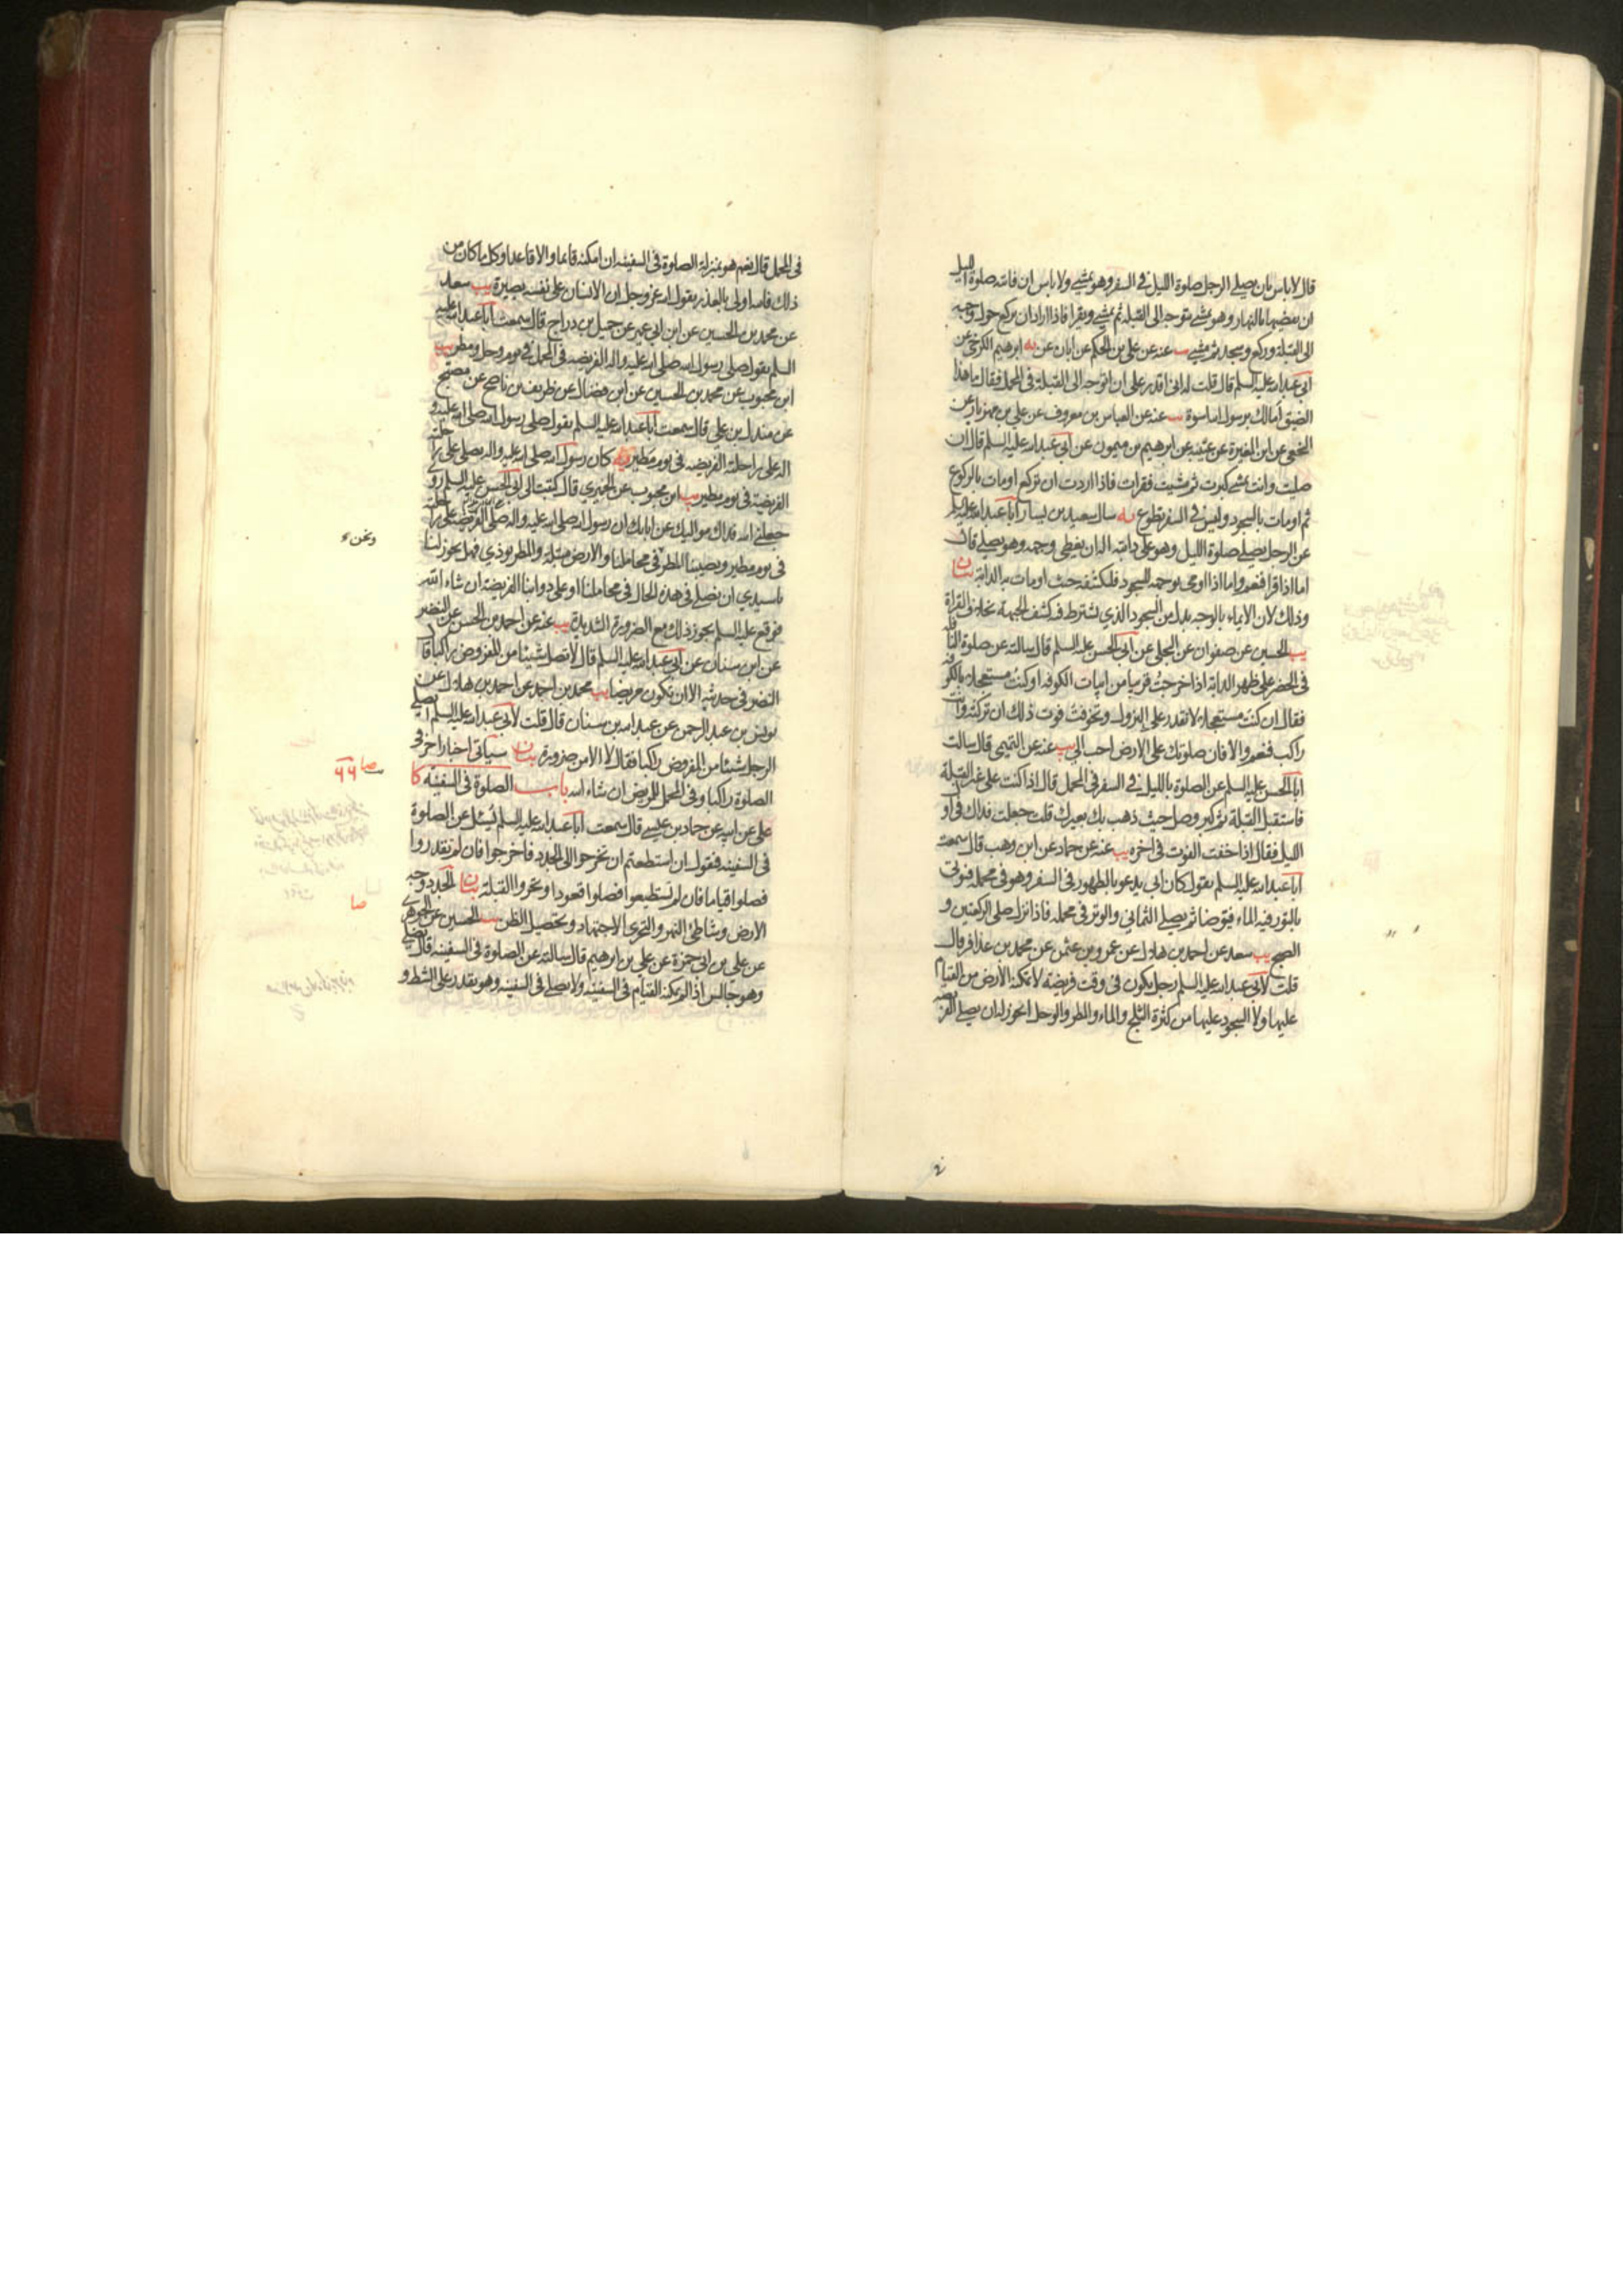 قال لا باس بان يصلي الرجل صلوة الليل في السفر وهو يمشي ولا باس ان فاتته صلوة الليل
ان يقضيها بالنهار وهو يمشي يتوجه الى القبلة ثم يمشي ويقرا فاذا اراد ان يركع حول وجهه
الى القبلة وركع وسجد ثم مشى يب عنه عن علي بن الحكم عن ابان عن يه ابرهيم الكرخي عن
ابي عبد الله عليه السلم قال قلت له اني اقدر على ان اتوجه الى القبلة في المحمل فقال ما هذا
الضيق اما لك برسول الله اسوة يب عنه عن العباس بن معروف عن علي بن مهزيار عن
النخعي عن ابن المغيرة عن عتيبة عن ابرهيم بن ميمون عن ابي عبد الله عليه السلم قال ان
صليت وانت تمشي كبرت ثم مشيت فقرات فاذا اردت ان تركع اومات بالركوع
ثم اومات بالسجود وليس في السفر تطوع يه سال سعيد بن يسار ابا عبد الله عليه السلم
عن الرجل يصلي صلوة الليل وهو على دابته اله ان يغطي وجهه وهو يصلي قال
اما اذا قرا فنعم واما اذا اومى بوجهه للسجود فليكشفه حيث اومات به الدابة بيان
وذلك لان الايماء بالوجه بدل من السجود الذي يشترط فيه كشف الجبهة بخلاف القراة
يب الحسين عن صفوان عن البجلي عن ابي الحسن عليه السلم قال سالته عن صلوة النافلة
في الحضر على ظهر الدابة اذا خرجت قريبا من ابيات الكوفه او كنت مستعجلا بالكوفه
فقال ان كنت مستعجلا لا تقدر على النزول وتخوفت فوت ذلك ان تركته وانت
راكب فنعم والا فان صلوتك على الارض احب الي يب عنه عن التميمي قال سالت
ابا الحسن عليه السلم عن الصلوة بالليل في السفر في المحمل قال اذا كنت على غير القبلة
فاستقبل القبلة ثم كبر وصل حيث ذهب بك بعيرك قلت جعلت فداك في اول
الليل فقال اذا خفت الفوت في اخره يب عنه عن حماد عن ابن وهب قال سمعت
ابا عبد الله عليه السلم يقول كان ابي يدعو بالطهور في السفر وهو في محمله فيؤتى
بالتور فيه الماء فيتوضا ثم يصلي الثماني والوتر في محمله فاذا نزل صلى الركعتين و
الصبح يب سعد عن احمد بن هلال عن عمرو بن عثمن عن محمد بن عذافر قال
قلت لابي عبد الله عليه السلم رجل يكون في وقت فريضة لا تمكنه الارض من القيام
عليها ولا السجود عليها من كثرة الثلج والماء والمطر والوحل ايجوز له ان يصلي الفريضه
في المحمل قال نعم هو بمنزلة الصلوة في السفينه ان امكنه قايما والا قاعدا وكل ما كان من
ذلك فالله اولى بالعذر يقول الله عز وجل بل الانسان على نفسه بصيرة يب سعد
عن محمد بن الحسين عن ابن ابي عمير عن جميل بن دراج قال سمعت ابا عبد الله عليه
السلم يقول صلى رسول الله صلى الله عليه واله الفريضه في المحمل في يوم وحل ومطر يب
ابن محبوب عن محمد بن الحسين عن ابن فضال عن ظريف بن ناصح عن مصبح
عن مندل بن علي قال سمعت ابا عبد الله عليه السلم يقول صلى رسول الله صلى الله عليه و
اله على راحلته الفريضه في يوم مطير يه كان رسول الله صلى الله عليه واله يصلي على راحلته
الفريضه في يوم مطير يب ابن محبوب عن الحميري قال كتبت الى ابي الحسن عليه السلم روى
جعلني الله فداك مواليك عن ابائك ان رسول الله صلى الله عليه واله صلى الفريضه على راحلته
في يوم مطير ويصيبنا المطر في محاملنا والارض مبتلة والمطر يوذي فهل يجوز لنا
يا سيدي ان نصلي في هذه الحال في محاملنا او على دوابنا الفريضة ان شاء الله
فوقع عليه السلم يجوز ذلك مع الضرورة الشديدة يب عنه عن احمد بن الحسن عن النضر
عن ابن سنان عن ابي عبد الله عليه السلم قال لا تصل شيئا من المفروض راكبا قال
النضر في حديثه الا ان تكون مريضا يب محمد بن احمد عن احمد بن هلال عن
يونس بن عبد الرحمن عن عبد الله بن سنان قال قلت لابي عبد الله عليه السلم ايصلي
الرجل شيئا من المفروض راكبا فقال لا الا من ضرورة بيان سياتي اخبار اخر في
الصلوة راكبا وفي المحمل للمريض ان شاء الله باب الصلوة في السفينه كا
علي عن ابيه عن حماد بن عيسى قال سمعت ابا عبد الله عليه السلم يُسئل عن الصلوة
في السفينه فيقول ان استطعتم ان تخرجوا الى الجدد فاخرجوا فان لم تقدروا
فصلوا قياما فان لم تستطيعوا فصلوا قعودا وتحروا القبلة بيان الجدد وجه
الارض وشاطئ النهر والتحري الاجتهاد وتحصيل الظن يب الحسين عن الجوهري
عن علي بن ابي حمزة عن علي بن ابرهيم قال سالته عن الصلوة في السفينه قال يصلي
وهو جالس اذا لم يمكنه القيام في السفينه ولا يصلي في السفينه وهو يقدر على الشط و
ونحن
صا ٦٦
صا